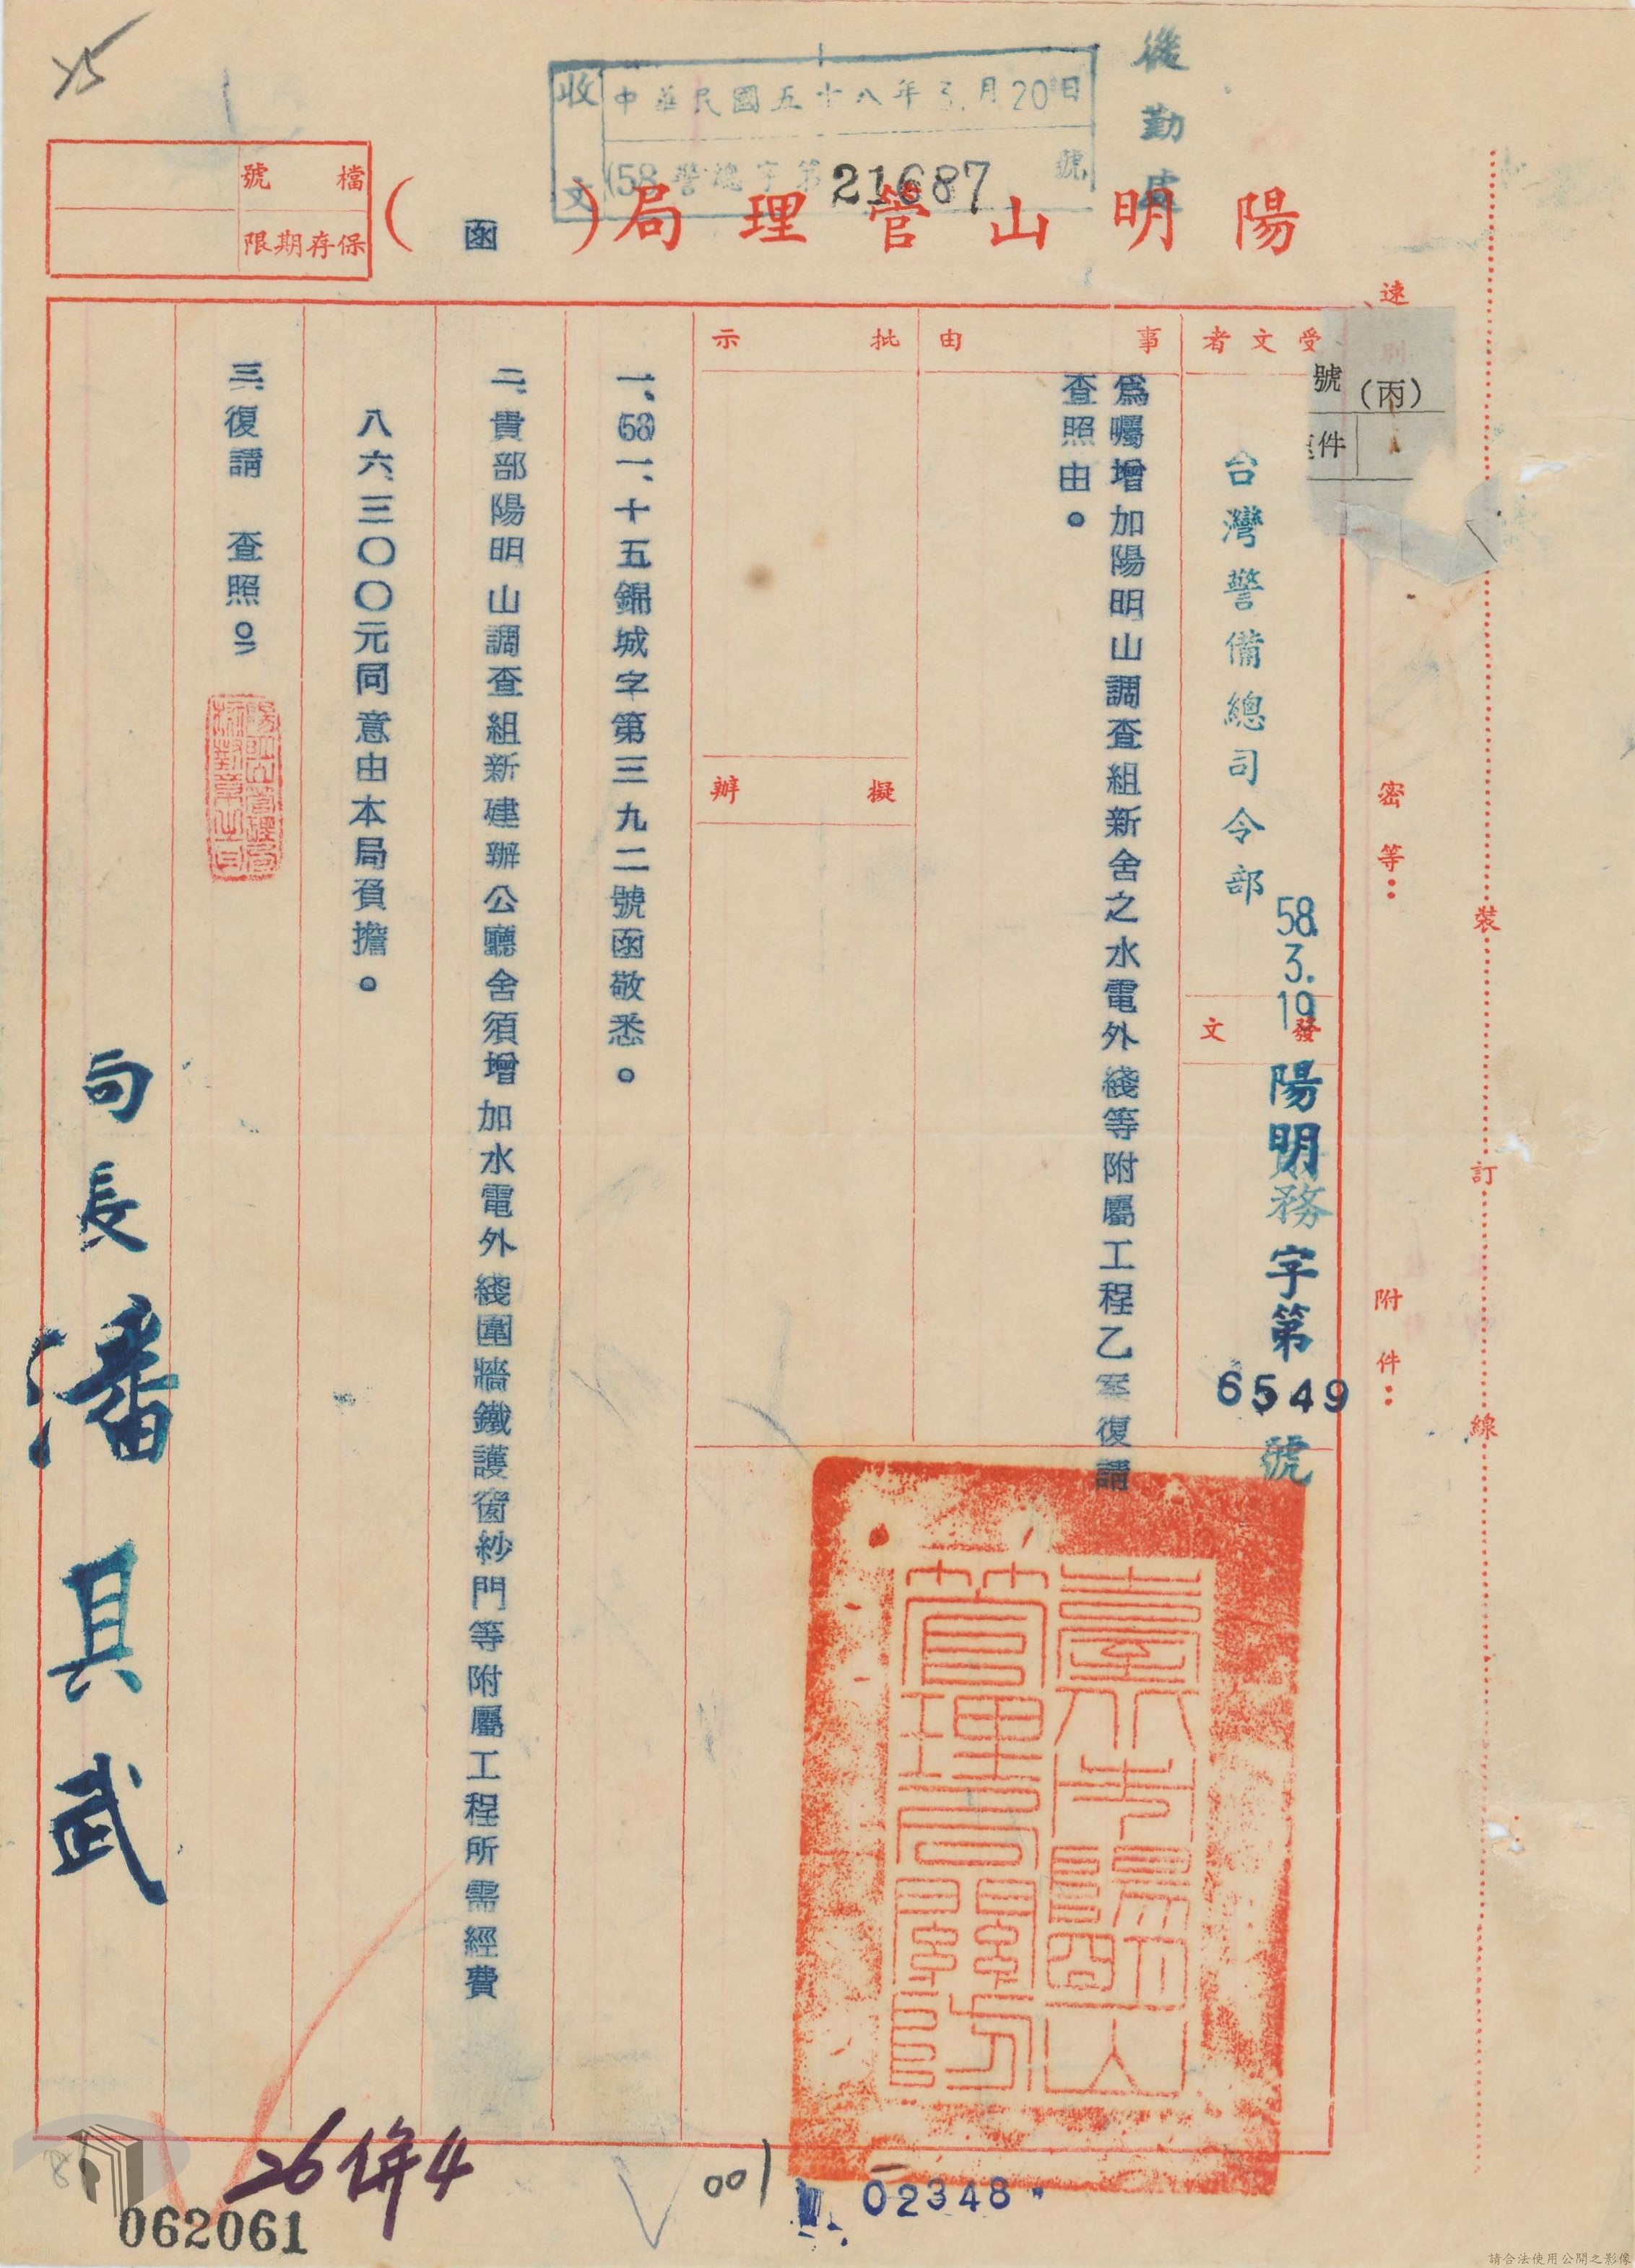 後勤處
收文
中華民國五十八年3月20日
(58)警總字第21687號
陽明山管理局(函)
檔號
保存期限
速別
號
(丙)
件
密等：
附件：
裝訂線
受文者
台灣警備總司令部
發文
58.3.19
陽明財務字第6549號
事由
為囑增加陽明山調查組新舍之水電外綫等附屬工程乙案復請
查照由。
批示
擬辦
一、(58)一、十五錦城字第三九二號函敬悉。
二、貴部陽明山調查組新建辦公廳舍須增加水電外綫圍牆鐵護窗紗門等附屬工程所需經費
八六、三〇〇元同意由本局負擔。
三、復請 查照。
局長 潘其武
臺北陽明山
管理局關防
26併4
001
02348
062061
請合法使用公開之影像